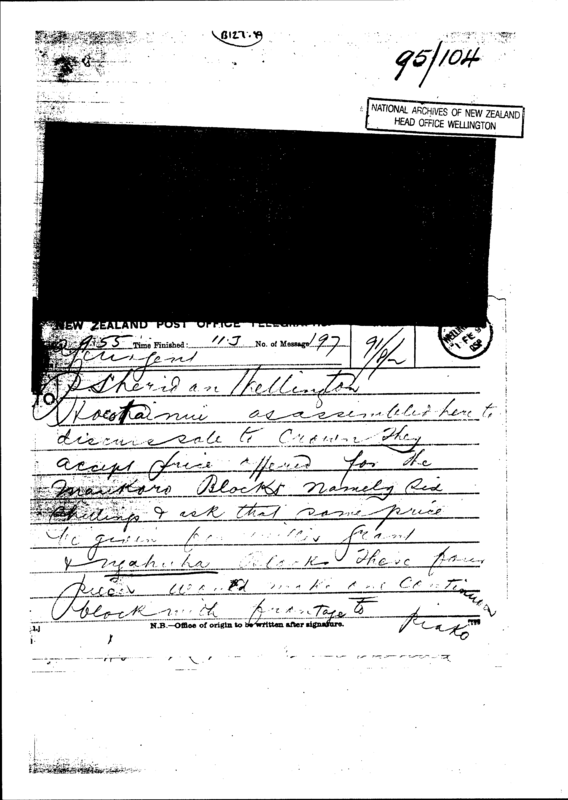 B127.A
95/104
NATIONAL ARCHIVES OF NEW ZEALAND
HEAD OFFICE WELLINGTON
NEW ZEALAND POST OFFICE TELEGRA
9.55 Time Finished: 11.5 No. of Message 197
Urgent
P Sheridan Wellington
TO
as assembled here to
discuss sale to Crown They
accept price offered for the
Maukoro Blocks namely six
shillings & ask that same price
be given for grant
& ngahuha Blocks These four
pieces would make one continuous
block with frontage to
Piako
N.B.—Office of origin to be written after signature.